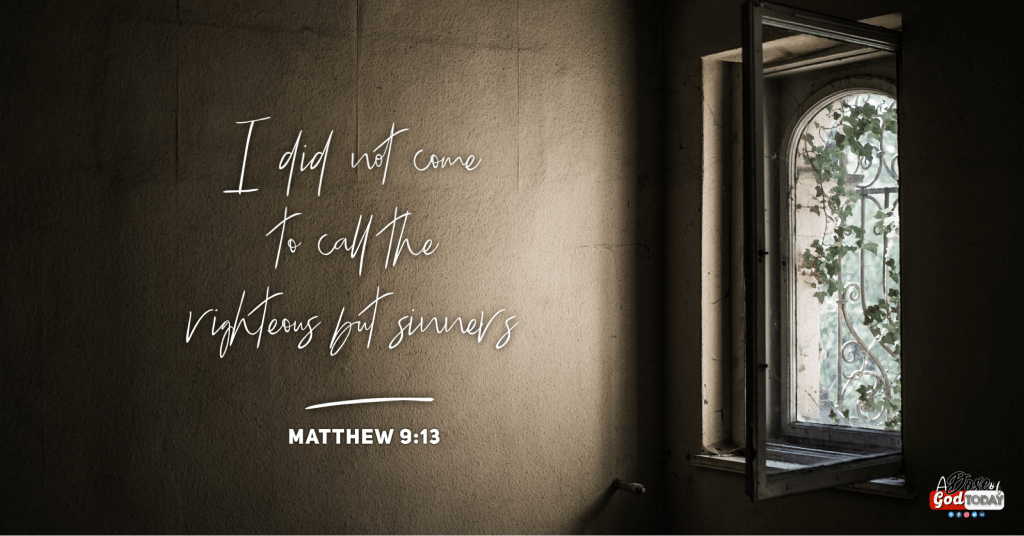 I did not come
to call the
righteous but sinners
MATTHEW 9:13
A Dose of
God TODAY